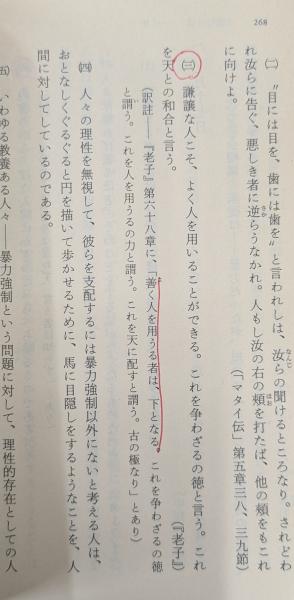 268
㈡ “目には目を、歯には歯を”と言われしは、汝らの聞けるところなり。されどわ
れ汝らに告ぐ、悪しき者に逆らうなかれ。人もし汝の右の頬を打たば、他の頬をもこれ
に向けよ。
(「マタイ伝」第五章三八、三九節)
㈢ 謙譲な人こそ、よく人を用いることができる。これを争わざるの徳と言う。これ
を天との和合と言う。
(『老子』)
(訳註――『老子』第六十八章に、「善く人を用うる者は、下となる。これを争わざるの徳
と謂う。これを人を用うるの力と謂う。これを天に配すと謂う。古の極なり」とあり)
㈣ 人々の理性を無視して、彼らを支配するには暴力強制以外にないと考える人は、
おとなしくぐるぐると円を描いて歩かせるために、馬に目隠しをするようなことを、人
間に対してしているのである。
㈤ いわゆる教養ある人々――暴力強制という問題に対して、理性的存在としての人